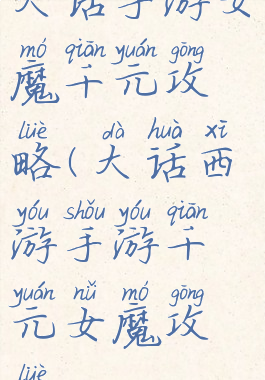 大话手游女
mó qiān yuán gōng
魔千元攻
lüè dà huà xī
略(大话西
yóu shǒu yóu qiān
游手游千
yuán nǚ mó gōng
元女魔攻
lüè